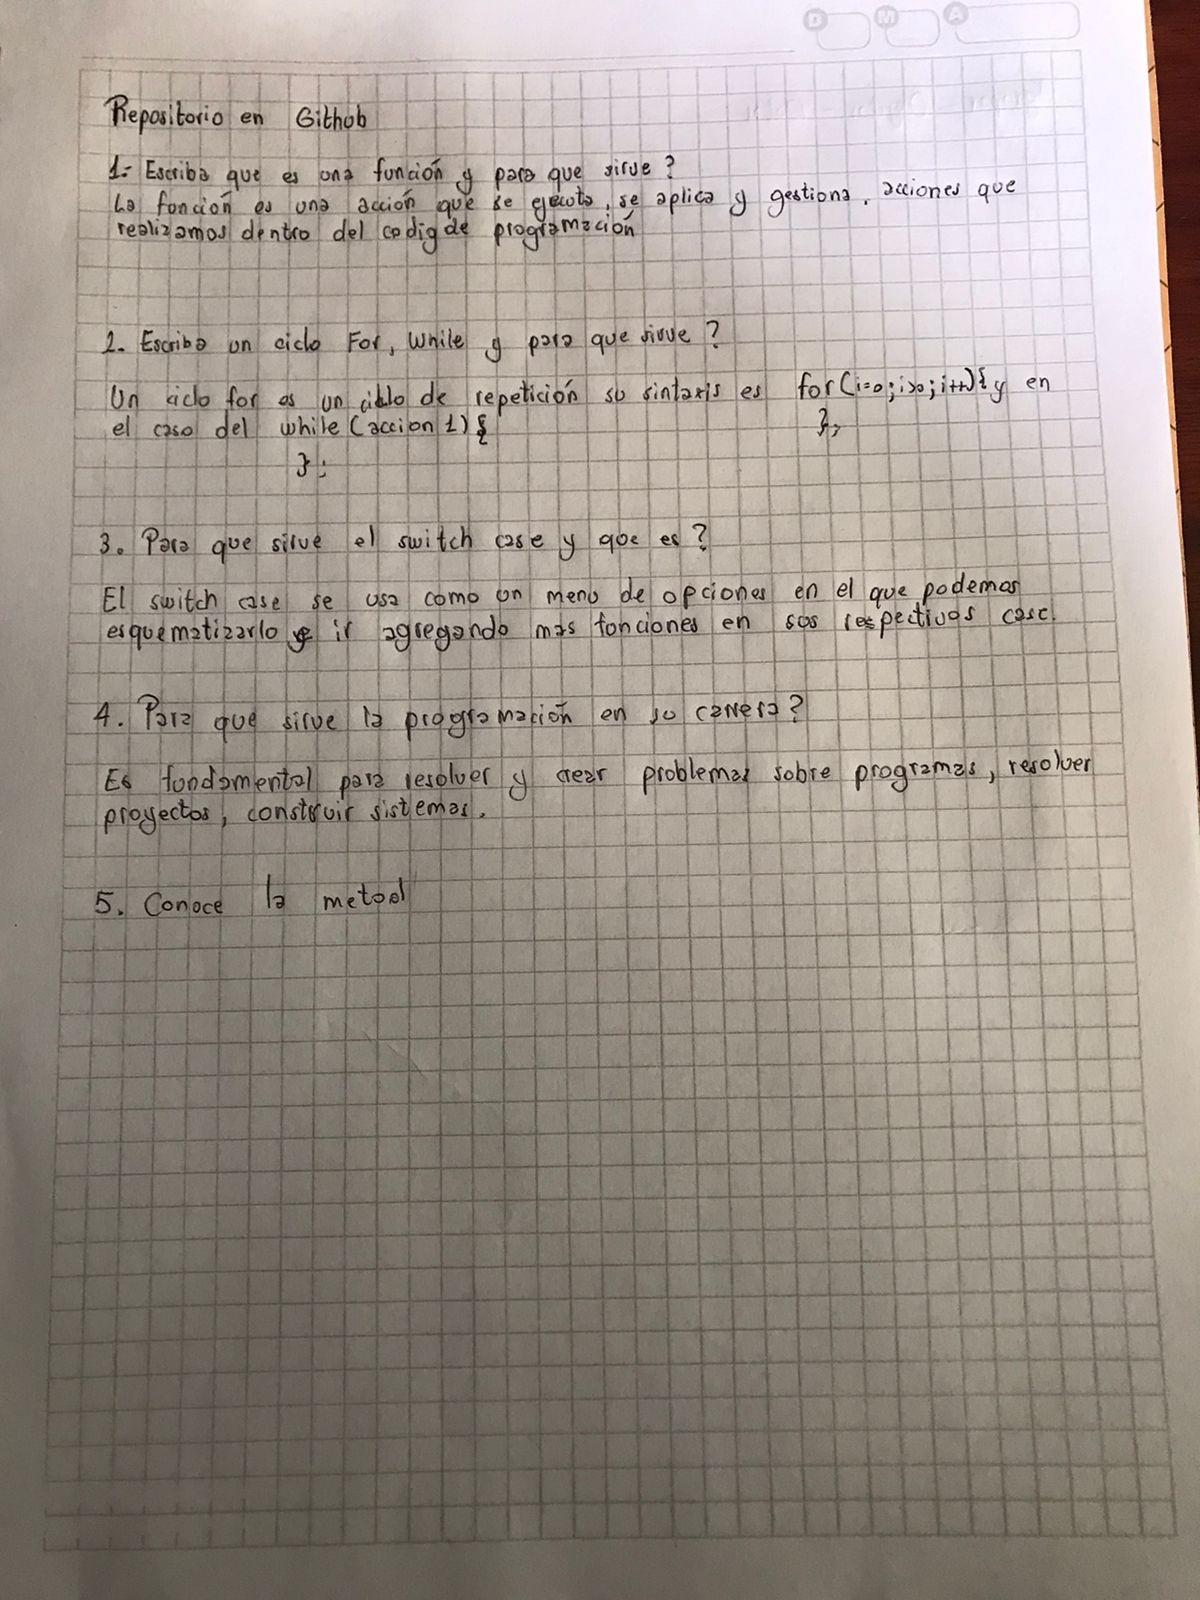 D M A
Repositorio en Github
1.- Escriba que es una función y para que sirve?
La función es una acción que se ejecuta, se aplica y gestiona, acciones que
realizamos dentro del codig de programación
2. Escriba un ciclo For, While y para que sirve?
Un ciclo for es un ciblo de repetición su sintaxis es for(i=0;i>0;i++){ y en
el caso del while (accion 1) { };
} ;
3. Para que sirve el switch case y que es?
El switch case se usa como un menu de opciones en el que podemos
esquematizarlo y ir agregando mas funciones en sus respectivos case.
4. Para que sirve la programación en su carrera?
Es fundamental para resolver y crear problemas sobre programas, resolver
proyectos, construir sistemas.
5. Conoce la metod